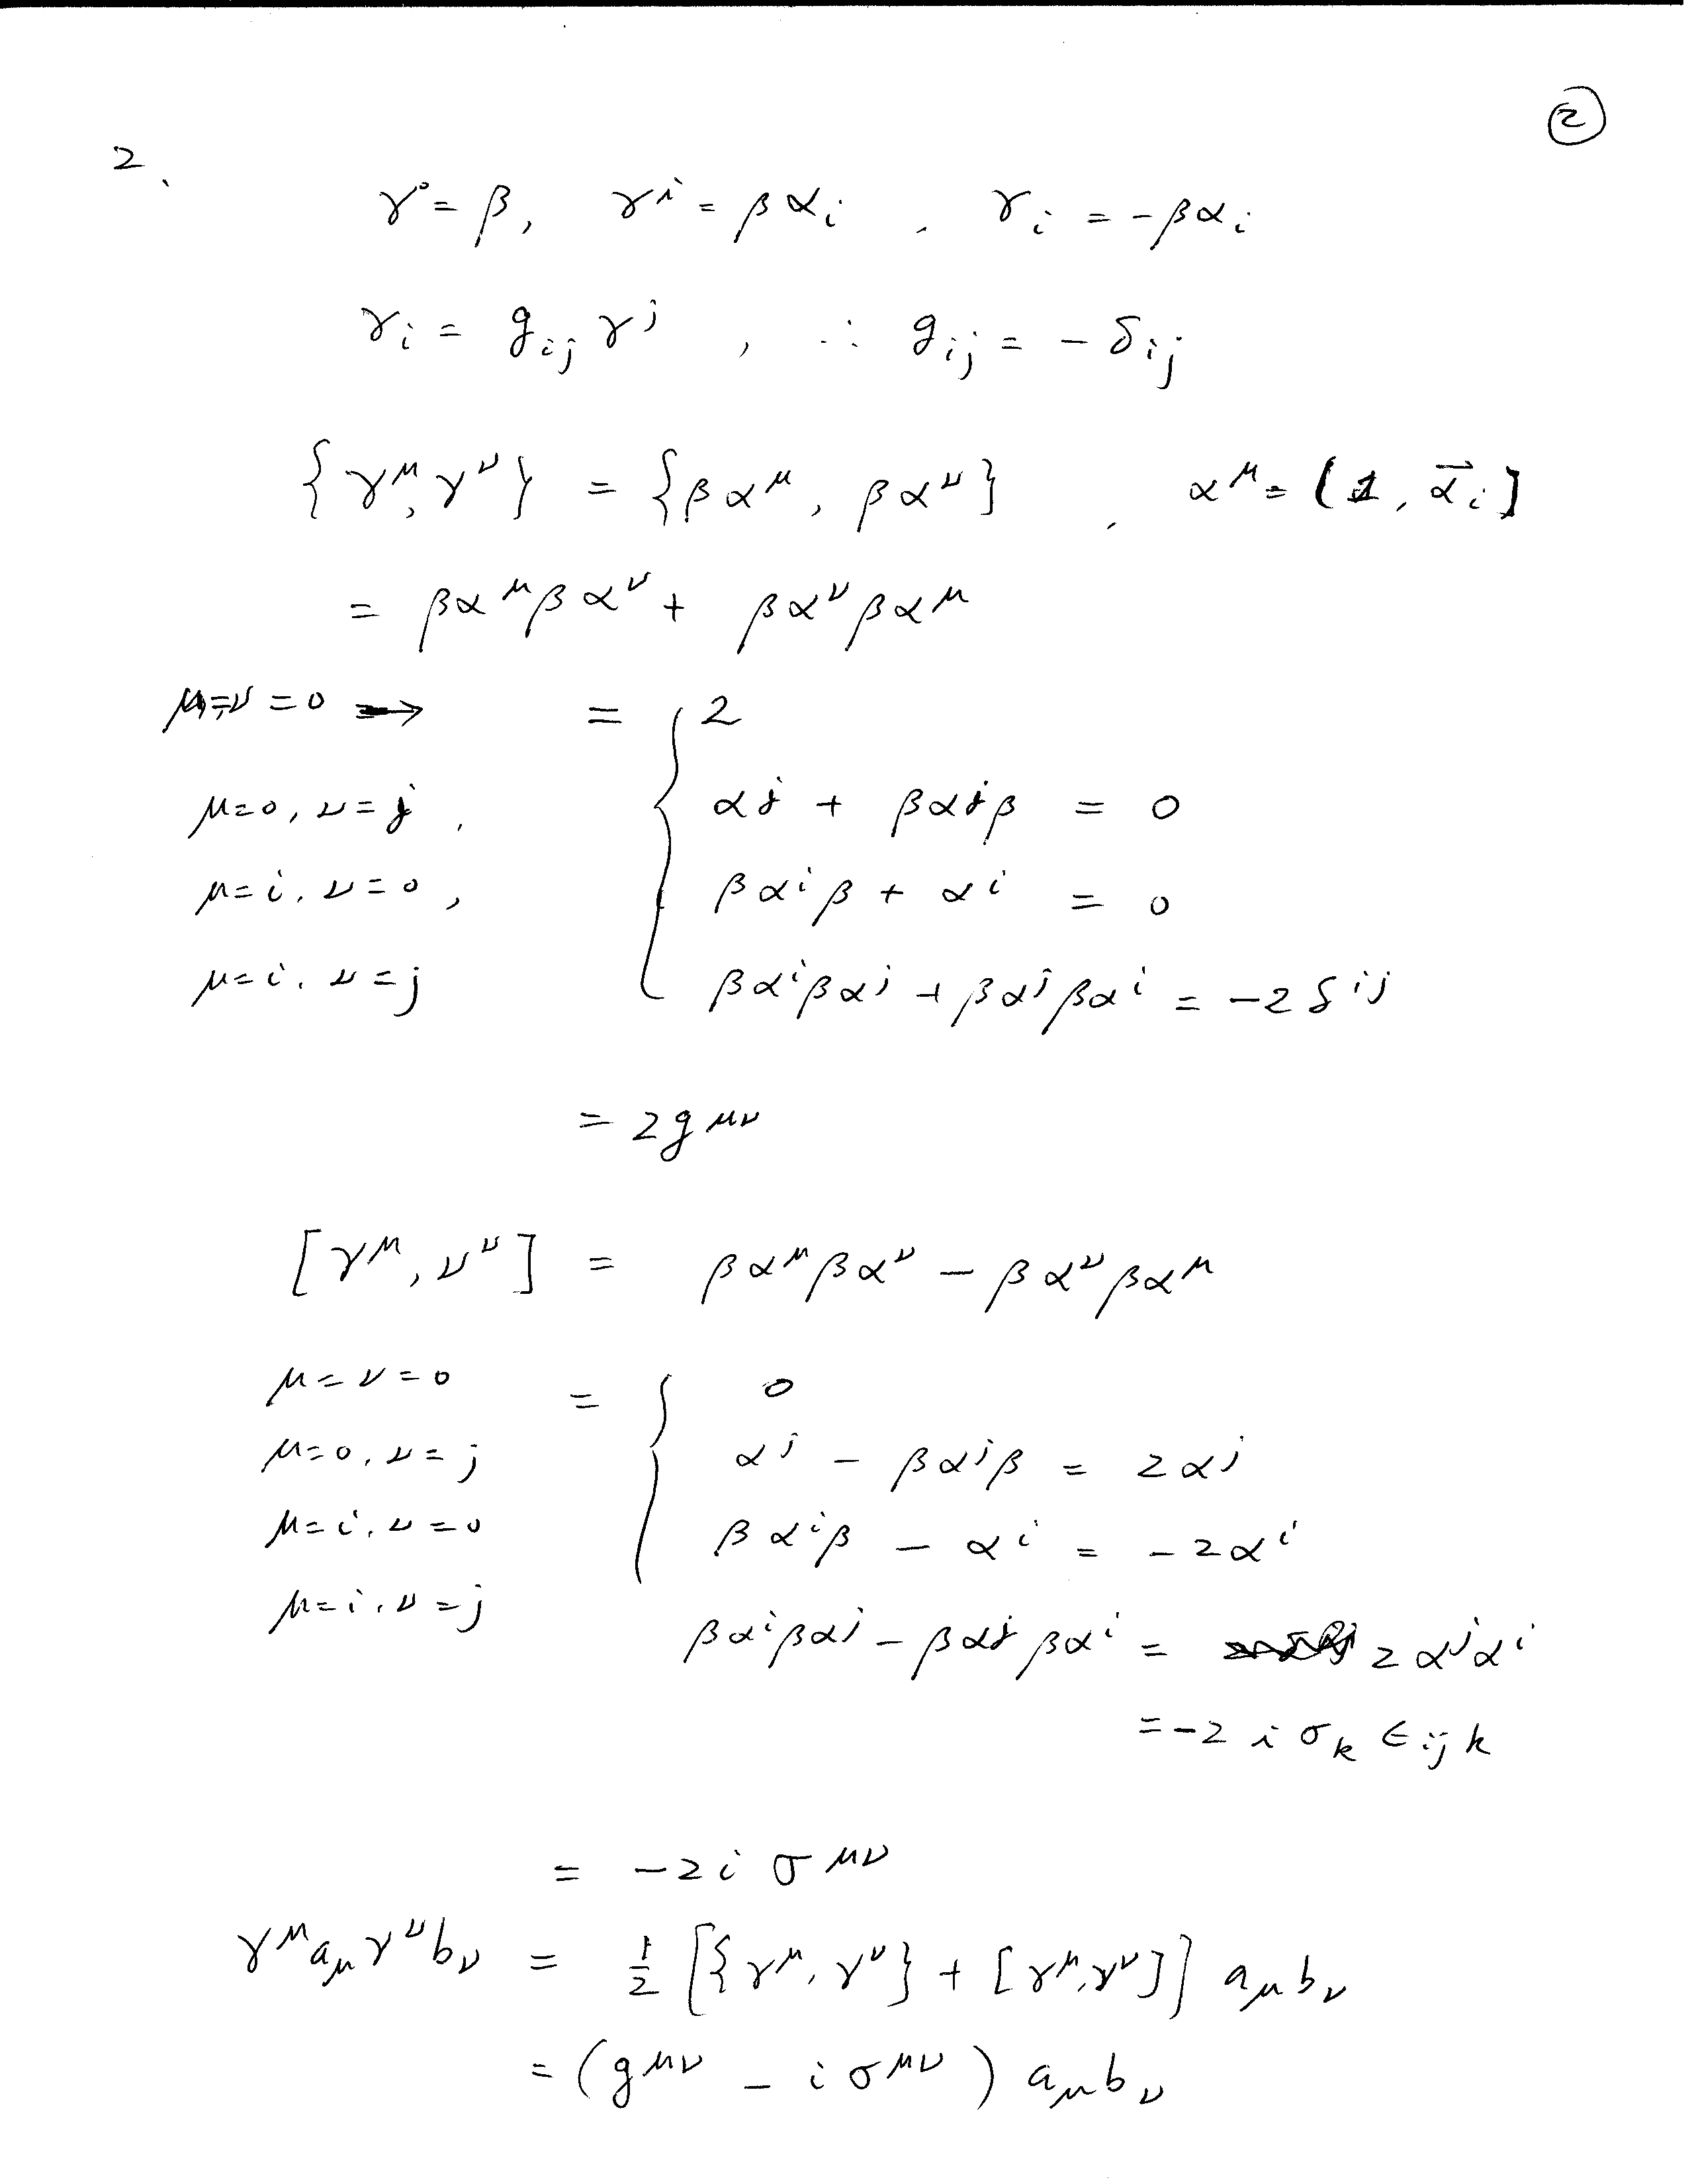 ②
2.
γ⁰ = β, γⁱ = βαᵢ, γᵢ = -βαᵢ
γᵢ = gᵢⱼ γʲ, ∴ gᵢⱼ = -δᵢⱼ
{γ^μ, γ^ν} = {βα^μ, βα^ν}, α^μ = (1, α⃗ᵢ)
= βα^μ βα^ν + βα^ν βα^μ
μ=ν=0 → = { 2
μ=0, ν=j, α^j + βα^jβ = 0
μ=i, ν=0, βα^iβ + α^i = 0
μ=i, ν=j βα^iβα^j + βα^jβα^i = -2δ^ij
= 2g^μν
[γ^μ, ν^ν] = βα^μβα^ν - βα^νβα^μ
μ=ν=0 = { 0
μ=0, ν=j α^j - βα^jβ = 2α^j
μ=i, ν=0 βα^iβ - α^i = -2α^i
μ=i, ν=j βα^iβα^j - βα^jβα^i = 2α^jα^i
= -2 i σ_k ∈_ijk
= -2i σ^μν
γ^μ a_μ γ^ν b_ν = 1/2 [{γ^μ, γ^ν} + [γ^μ, γ^ν]] a_μ b_ν
= (g^μν - iσ^μν) a_μ b_ν